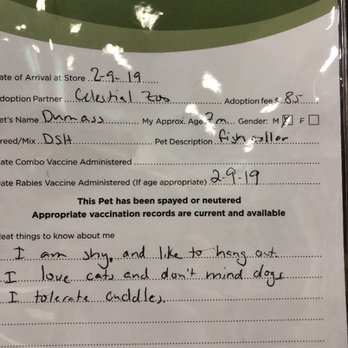 ate of Arrival at Store 2-9-19
doption Partner Celestial Zoo Adoption fee $ 85
et's Name Dumass My Approx. Age 2m Gender: M F
reed/Mix DSH Pet Description
ate Combo Vaccine Administered
ate Rabies Vaccine Administered (If age appropriate) 2-9-19
This Pet has been spayed or neutered
Appropriate vaccination records are current and available
eat things to know about me
I am shy, and like to hang out
I love cats and don't mind dogs
I tolerate cuddles.